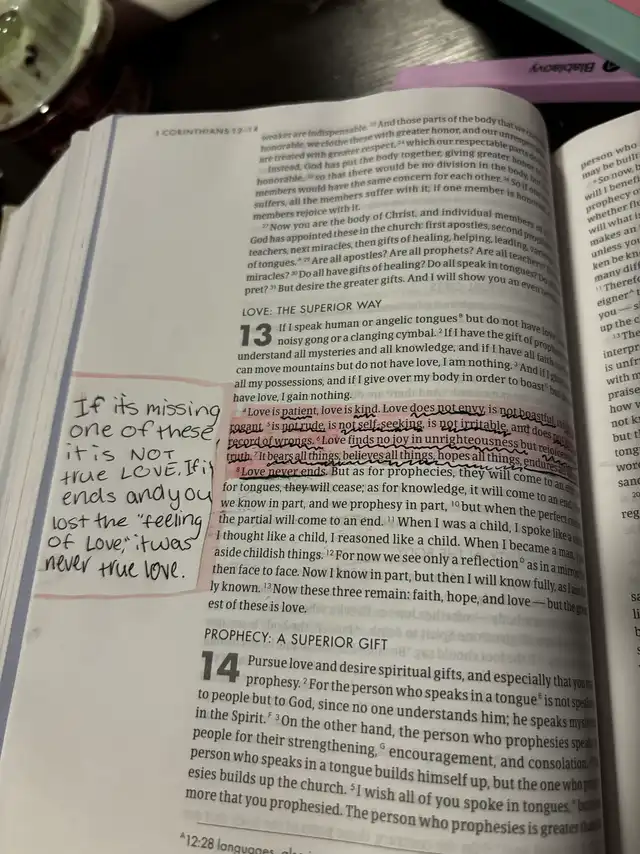 Blablaovy
1 CORINTHIANS 12–14
weaker are indispensable. 23 And those parts of the body that we
honorable, we clothe these with greater honor, and our unrespectable
are treated with greater respect, 24 which our respectable parts
Instead, God has put the body together, giving greater honor to
honorable, 25 so that there would be no division in the body, but
members would have the same concern for each other. 26 So if one
suffers, all the members suffer with it; if one member is honored,
members rejoice with it.
27 Now you are the body of Christ, and individual members of
God has appointed these in the church: first apostles, second prophets,
teachers, next miracles, then gifts of healing, helping, leading, various
of tongues.A 29 Are all apostles? Are all prophets? Are all teachers?
miracles? 30 Do all have gifts of healing? Do all speak in tongues? Do
pret? 31 But desire the greater gifts. And I will show you an even better
LOVE: THE SUPERIOR WAY
13 If I speak human or angelic tongues but do not have love,
noisy gong or a clanging cymbal. 2 If I have the gift of prophecy
understand all mysteries and all knowledge, and if I have all faith
can move mountains but do not have love, I am nothing. 3 And if I
all my possessions, and if I give over my body in order to boast
have love, I gain nothing.
4 Love is patient, love is kind. Love does not envy, is not boastful,
rogant, 5 is not rude, is not self-seeking, is not irritable, and does
record of wrongs. 6 Love finds no joy in unrighteousness but rejoices
truth. 7 It bears all things, believes all things, hopes all things, endures
8 Love never ends. But as for prophecies, they will come to an
for tongues, they will cease; as for knowledge, it will come to an end.
we know in part, and we prophesy in part, 10 but when the perfect
the partial will come to an end. 11 When I was a child, I spoke like a
I thought like a child, I reasoned like a child. When I became a man,
aside childish things. 12 For now we see only a reflection as in a mirror,
then face to face. Now I know in part, but then I will know fully, as I am
ly known. 13 Now these three remain: faith, hope, and love — but the
est of these is love.
If its missing
one of these
it is NOT
true LOVE. If it
ends and you
lost the "feeling
of Love," it was
never true love.
PROPHECY: A SUPERIOR GIFT
14 Pursue love and desire spiritual gifts, and especially that you
prophesy. 2 For the person who speaks in a tongueE is not speaking
to people but to God, since no one understands him; he speaks mysteries
in the Spirit.F 3 On the other hand, the person who prophesies speaks
people for their strengthening,G encouragement, and consolation.
person who speaks in a tongue builds himself up, but the one who
esies builds up the church. 5 I wish all of you spoke in tongues,
more that you prophesied. The person who prophesies is greater than
A 12:28 languages, also
person who
may be built
6 So now, b
will I benefi
prophecy o
whether flu
will what i
makes an
unless yo
ken be kn
many diff
11 Therefo
eigner
you — s
up the c
13 The
interpr
is unfr
with m
praise